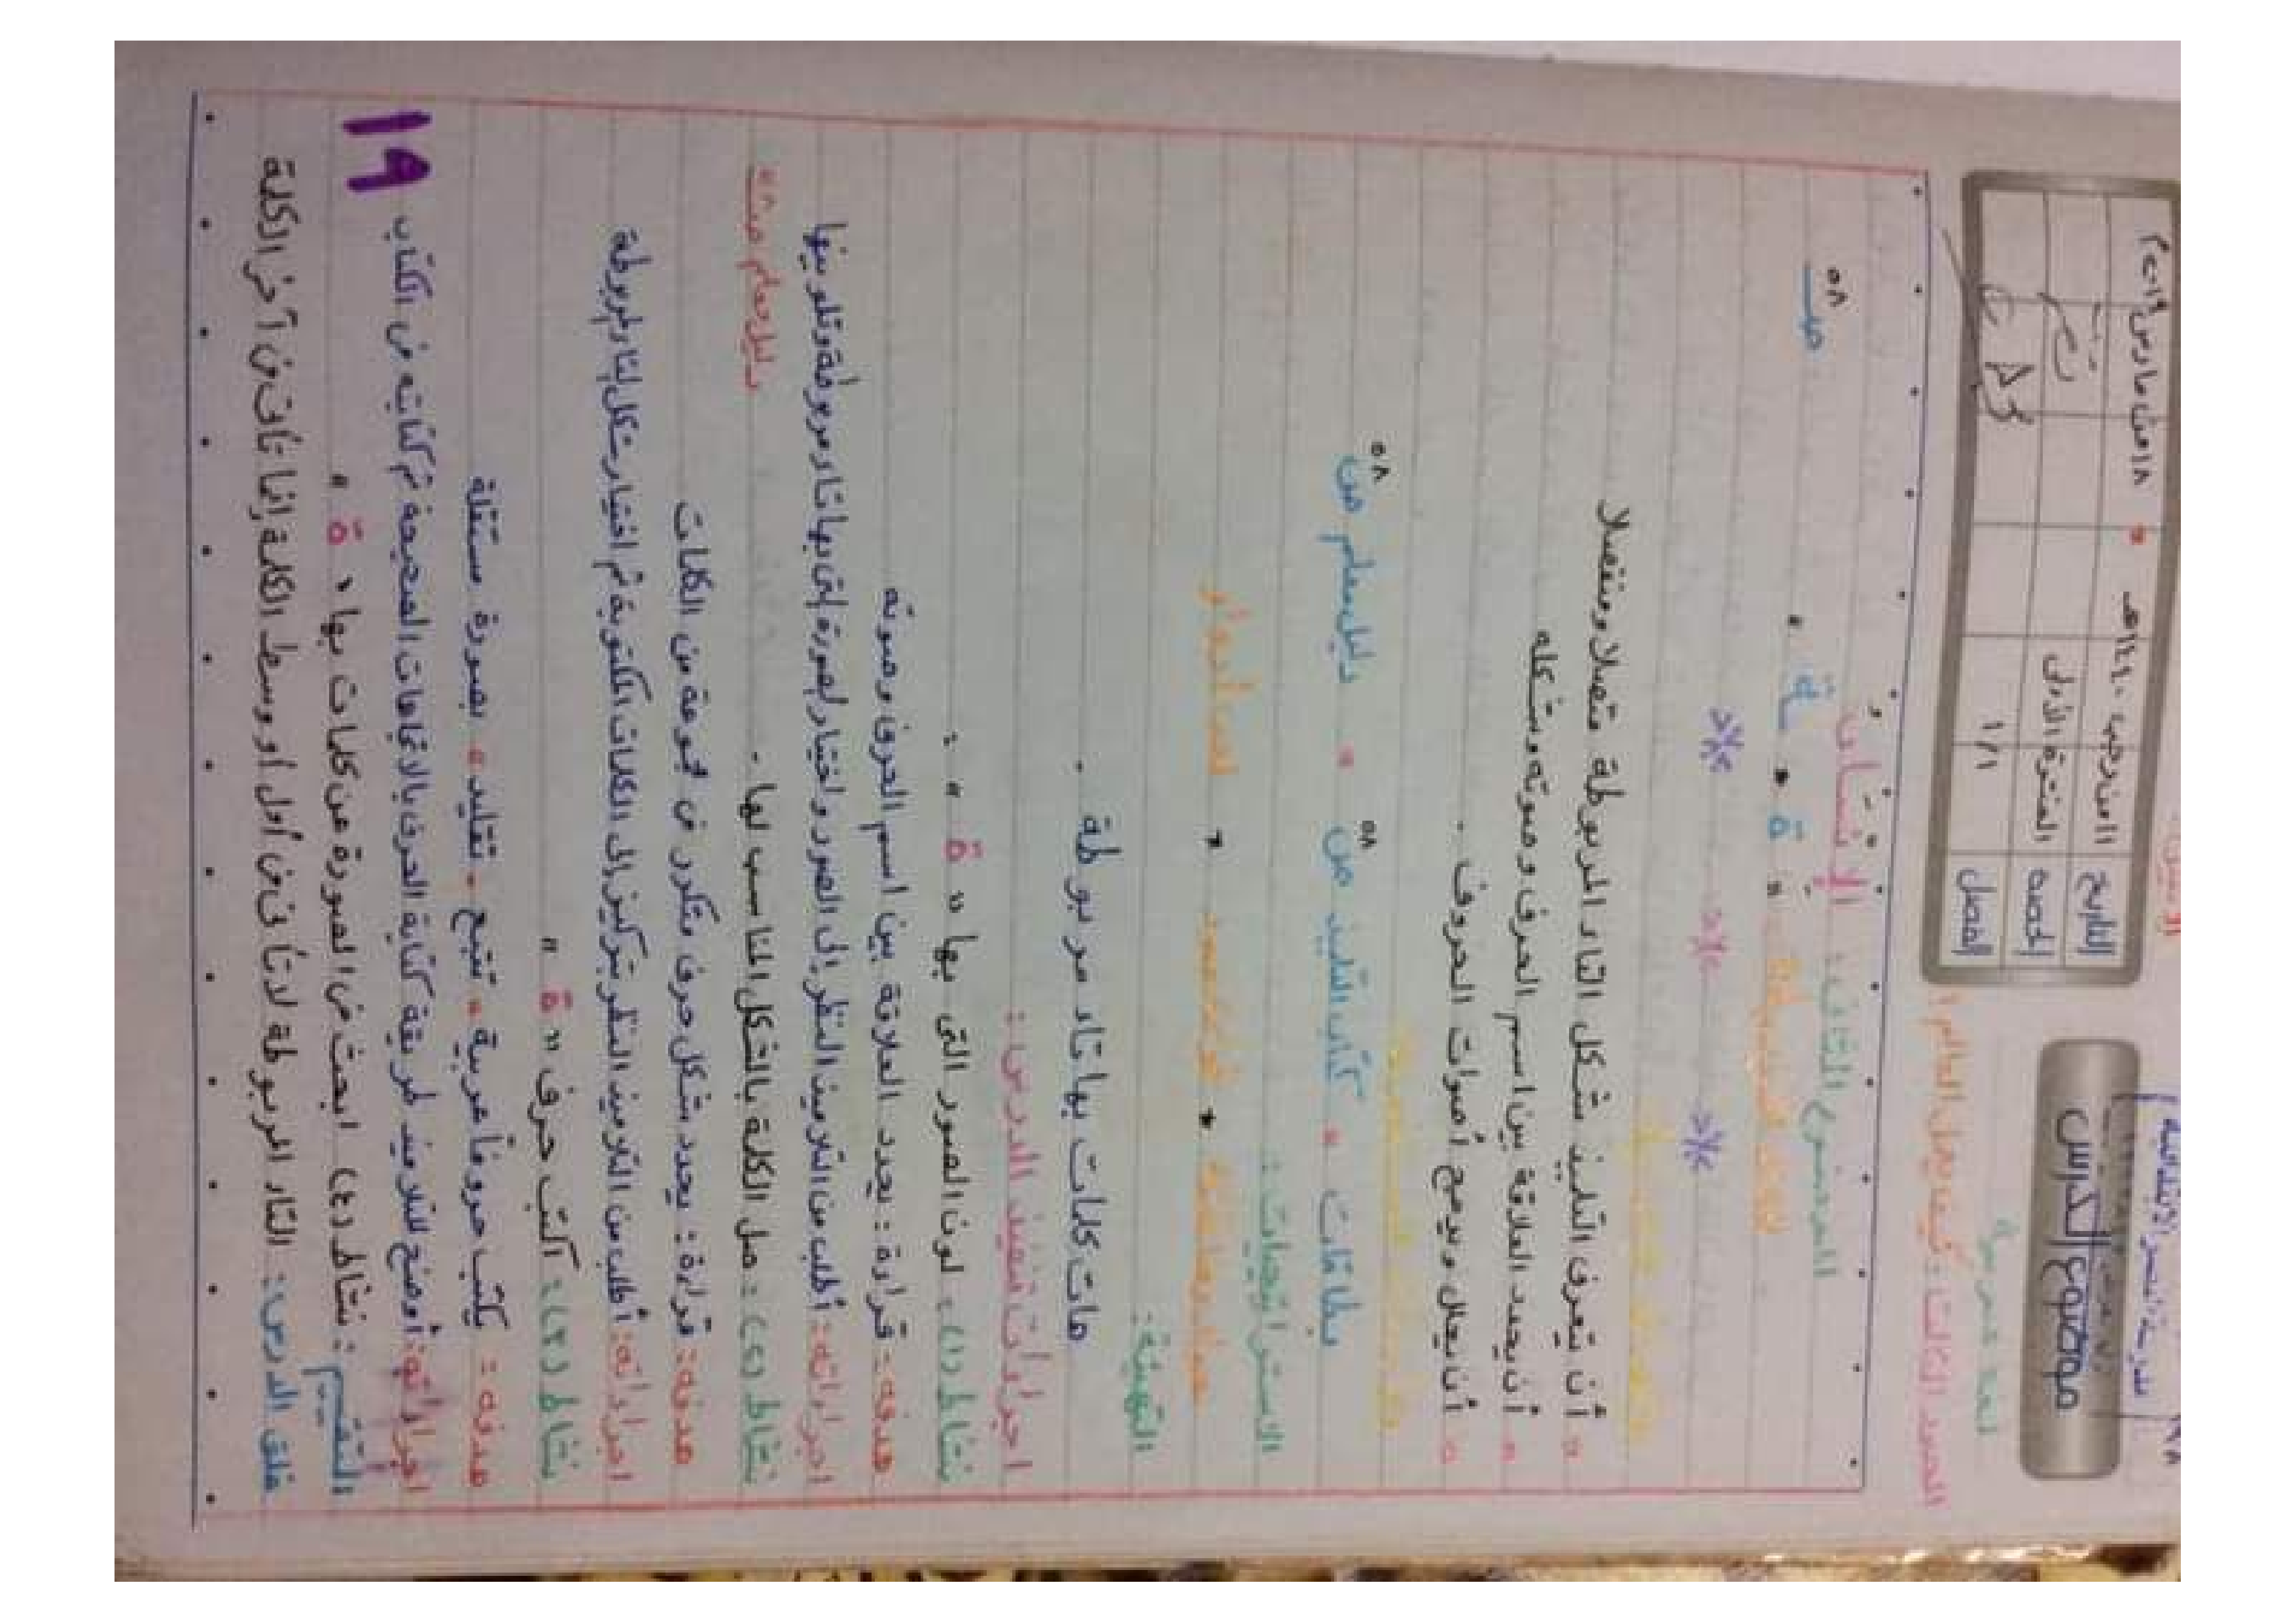 موضوع الدرس
التاريخ ١١ من رجب ١٤٤٠هـ * ١٨ من مارس ٢٠١٩م
الحصة الفترة الأولى
الفصل ١/١
المحور الثالث: كيف يعمل العالم؟
الموضوع الثاني: الإنسان
" ة ، ـة " صـ ٥٨
* أن يتعرف التلميذ شكل التاء المربوطة متصلا ومنفصلا
* أن يحدد العلاقة بين اسم الحرف وصوته وشكله
* أن يحلل ويدمج أصوات الحروف .
بطاقات * كتاب التلميذ ص ٥٨ * دليل معلم ص ٥٨
الاستراتيجيات :
التهيئة :
هات كلمات بها تاء مربوطة .
اجراءات تنفيذ الدرس :
نشاط (١) : لون الصور التى بها " ة " :
هدفه : قراءة : يحدد العلاقة بين اسم الحرف وصوته
اجراءاته : أطلب من التلاميذ النظر إلى الصور واختيار الصورة التى بها تاء مربوطة وتلوينها
نشاط (٢) : صل الكلمة بالشكل المناسب لها . دليل معلم صـ ٥٨
هدفه : قراءة : يحدد شكل حرف متكرر فى مجموعة من الكلمات
اجراءاته : أطلب من التلاميذ النظر بتركيز إلى الكلمات المكتوبة ثم اختيار شكل التاء المربوطة
نشاط (٣) : اكتب حرف " ة "
هدفه : يكتب حروفاً عربية * تتبع * تقليد * بصورة مستقلة
اجراءاته : أوضح للتلاميذ طريقة كتابة الحرف بالاتجاهات الصحيحة ثم كتابته فى الكتاب
التقييم : نشاط (٤) ابحث فى الصورة عن كلمات بها " ة "
غلق الدرس : التاء المربوطة لا تأتى فى أول أو وسط الكلمة إنما تأتى فى آخر الكلمة
١٩